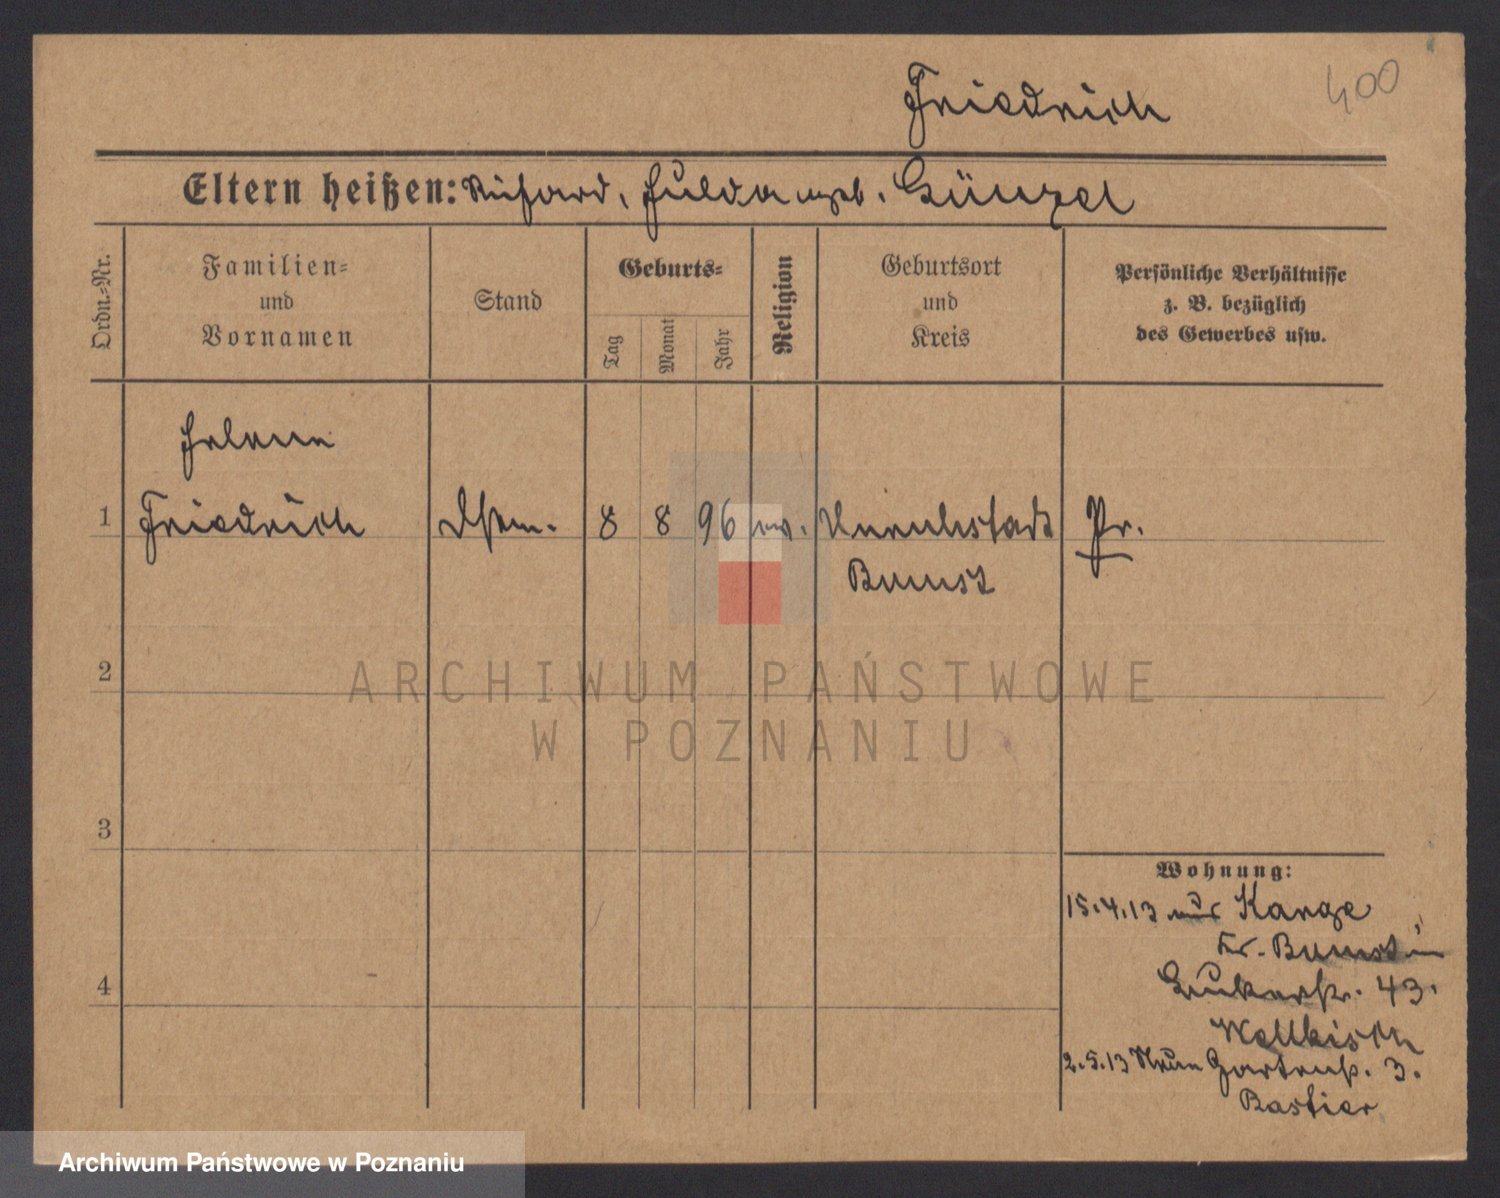 400
Friedrich
Eltern heißen: Richard, Hulda geb. Günzel
Ordn.-Nr.
Familien- und Vornamen
Stand
Geburts-
Tag
Monat
Jahr
Religion
Geburtsort und Kreis
Persönliche Verhältnisse z. B. bezüglich des Gewerbes usw.
Helene
1 Friedrich
8 8 96 ev. Unruhstadt Pr.
Bomst
2
3
4
Wohnung:
15.4.13 aus Karge
Kr. Bomst in
43.
Wollkisch
2.5.13 Neue Gartenstr. 3.
Bastier
ARCHIWUM PAŃSTWOWE
W POZNANIU
Archiwum Państwowe w Poznaniu